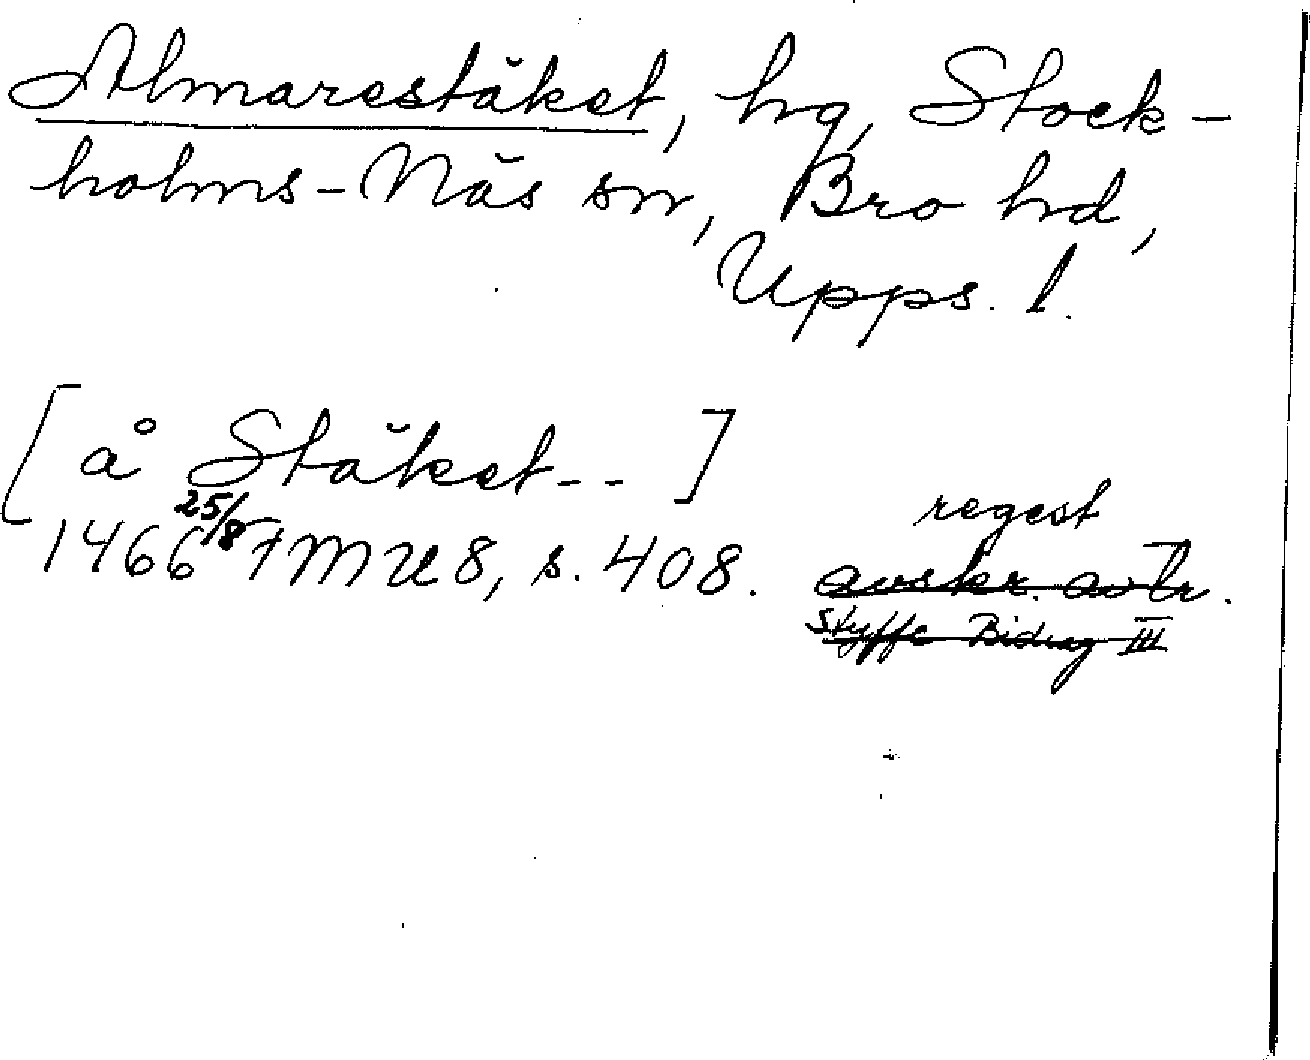 Almarestäket, hg, Stock-
holms-Näs sn, Bro hd,
Upps. l.
[å Stäket-- ]
regest
1466 25/8 FMU 8, s. 408. avskr. av tr.
Styffe Bidrag III